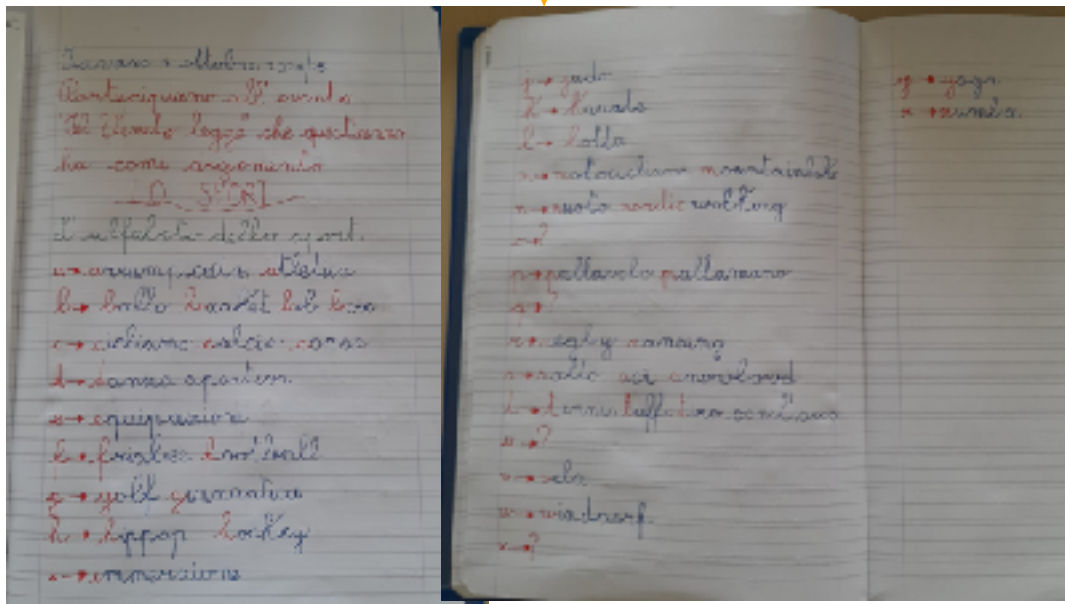 Partecipiamo all' evento
"Il Veneto legge" che quest'anno
ha come argomento
LO SPORT
L'alfabeto dello sport.
a→arrampicata atletica
b→ballo basket bob boxe
c→ciclismo calcio corsa
d→danza sportiva
e→equitazione
f→frisbee football
g→golf ginnastica
h→hippop hockey
i→immersione
j→judo
k→karate
l→lotta
m→motociclismo mountainbike
n→nuoto nordic walking
o→?
p→pallavolo pallamano
q→?
r→rugby running
s→salto sci snowboard
t→tennis tuffi tiro con l'arco
u→?
v→vela
w→windsurf
x→?
y→yoga
z→zumba